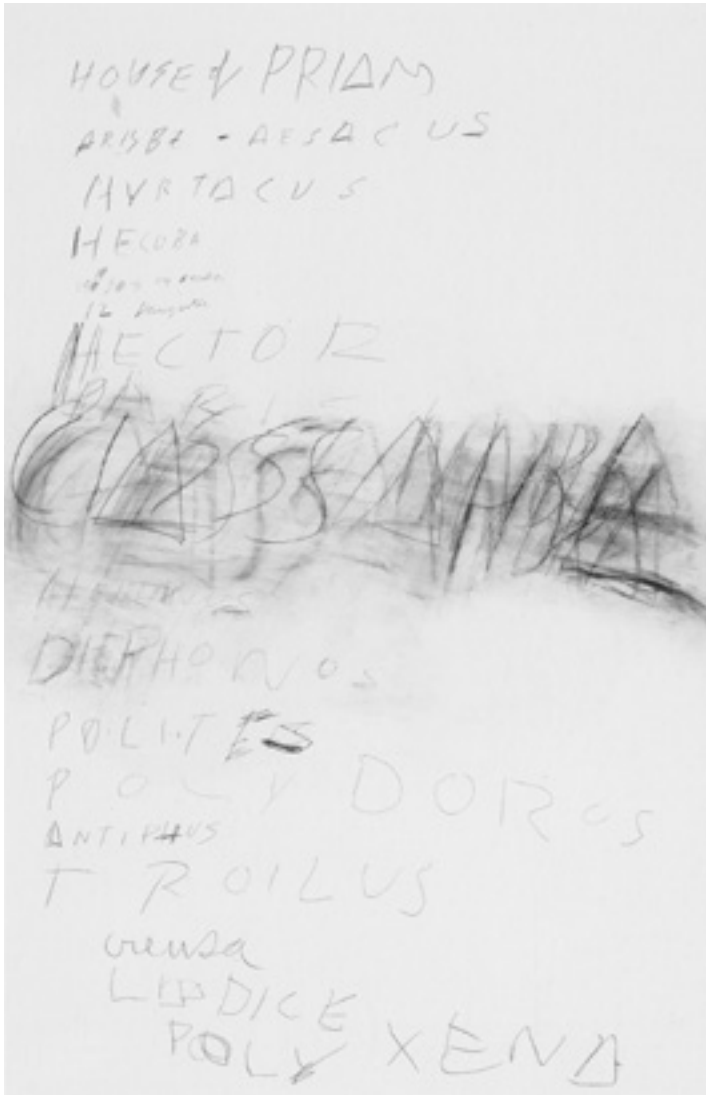 HOUSE of PRIAM
ARISBE - AESACUS
HYRTACUS
HECUBA
12
HECTOR
PARIS
CASSANDRA
DIEPHONOS
POLITES
POLYDOROS
ANTIPHUS
TROILUS
creusa
LAODICE
POLYXENA